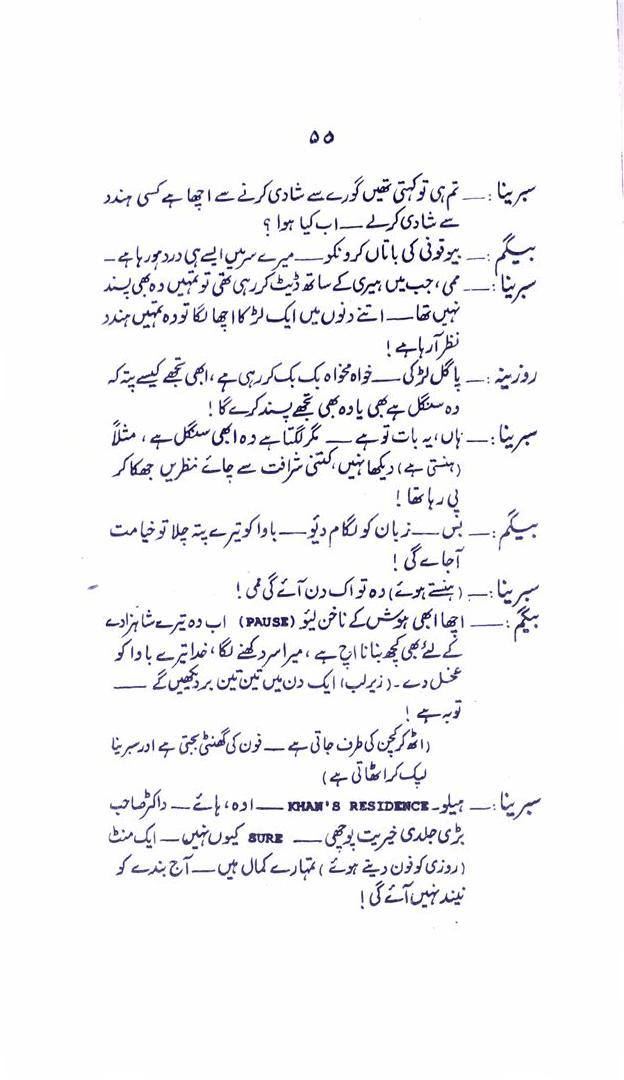 ۵۵
سبرینا :۔ — تم ہی تو کہتی تھیں گورے سے شادی کرنے سے اچھا ہے کسی ہندو
سے شادی کر لے — اب کیا ہوا ؟
بیگم :۔ — بیوقوفی کی باتاں کرو نکو — میرے سر میں ایسے ہی درد ہو رہا ہے —
سبرینا :۔ — ممی ، جب میں ہیری کے ساتھ ڈیٹ کر رہی تھی تو تمہیں وہ بھی پسند
نہیں تھا — اتنے دنوں میں ایک لڑکا اچھا لگا تو وہ تمہیں ہندو
نظر آ رہا ہے !
روزینہ :۔ — پاگل لڑکی — خواہ مخواہ بک بک کر رہی ہے ، ابھی تجھے کیسے پتہ کہ
وہ سنگل ہے بھی یا وہ بھی تجھے پسند کرے گا !
سبرینا :۔ — ہاں ، یہ بات تو ہے — مگر لگتا ہے وہ ابھی سنگل ہے ، مثلاً
(ہنستی ہے) دیکھا نہیں ، کتنی شرافت سے چائے نظریں جھکا کر
پی رہا تھا !
بیگم :۔ — بس — زبان کو لگام دیو — باوا کو تیرے پتہ چلا تو خیامت
آ جائے گی !
سبرینا :۔ — (ہنستے ہوئے) وہ تو اک دن آئے گی ممی !
بیگم :۔ — اچھا ابھی ہوش کے ناخن لیئو (PAUSE) اب وہ تیرے شاہزادے
کے لئے بھی کچھ بنانا اچ ہے ، میرا سر دکھنے لگا ، خدا تیرے باوا کو
عخل دے ۔ (زیر لب) ایک دن میں تین تین بر دیکھیں گے —
توبہ ہے !
(اٹھ کر کچن کی طرف جاتی ہے — فون کی گھنٹی بجتی ہے اور سبرینا
لپک کر اٹھاتی ہے)
سبرینا :۔ — ہیلو۔ KHAN'S RESIDENCE — اوہ ، ہائے — ڈاکٹر صاحب
بڑی جلدی خیریت پوچھی — SURE کیوں نہیں — ایک منٹ
(روزی کو فون دیتے ہوئے) تمہارے کمال ہیں — آج بندے کو
نیند نہیں آئے گی !